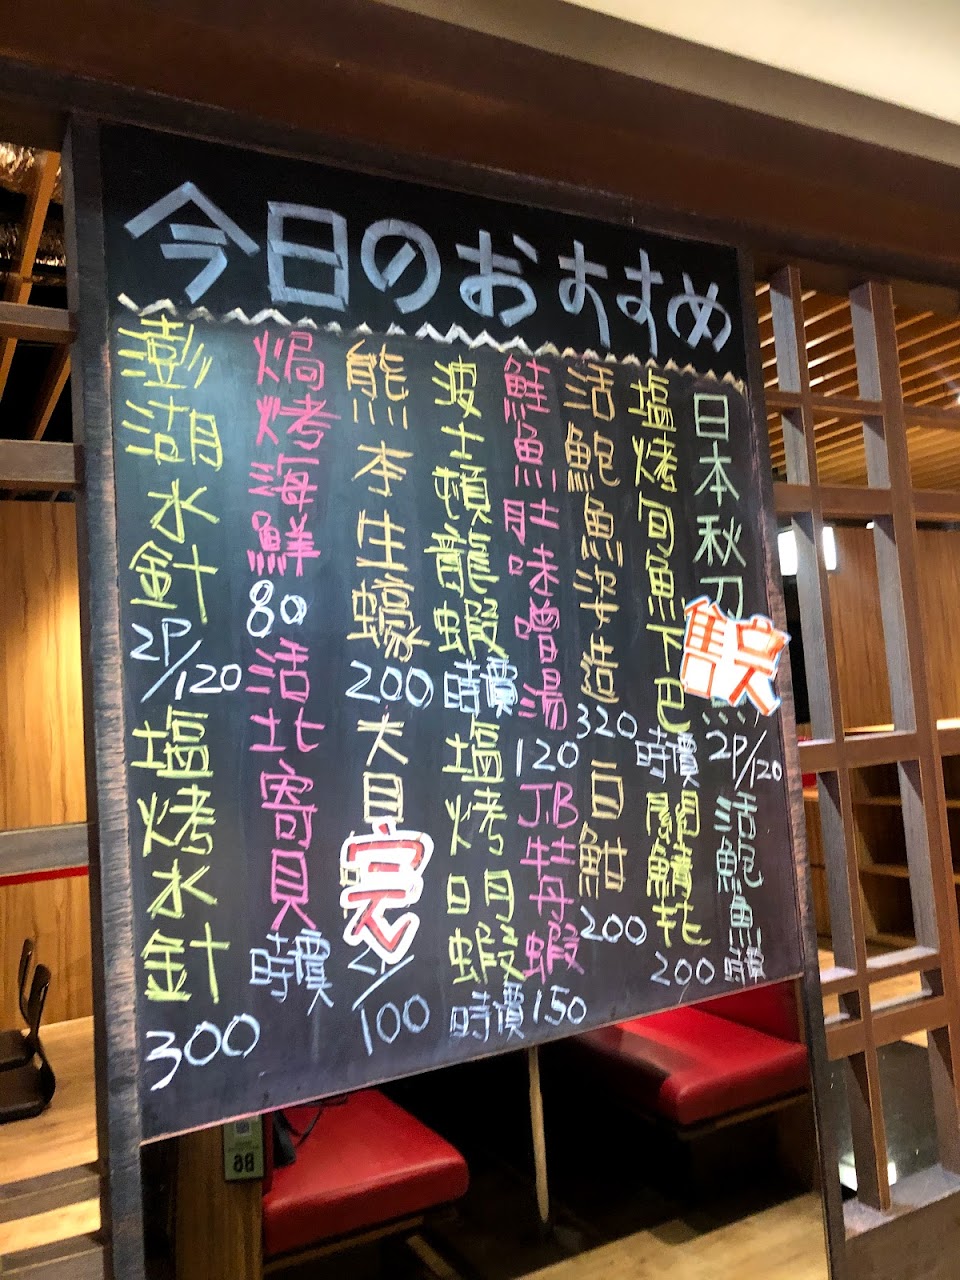 今日のおすすめ
日本秋刀魚 2P/120 活鮑魚 時價
售完
塩烤旬魚下巴 時價 花 200
活鮑魚姿造 320 白魽 200
鮭魚肚味噌湯 120 JB牡丹蝦 150
波士頓龍蝦 時價 塩烤明蝦 時價
熊本生蠔 200 大 /100
完
焗烤海鮮 80 活北寄貝 時價
澎湖水針 2P/120 塩烤水針 300